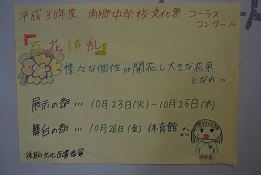 平成30年度 南郷中学校文化祭 コーラス
コンクール
『百花繚乱』
様々な個性が開花し大きな花束
となれ〜
展示の部 … 10月23日(火)〜10月25日(木)
舞台の部 … 10月26日(金) 体育館